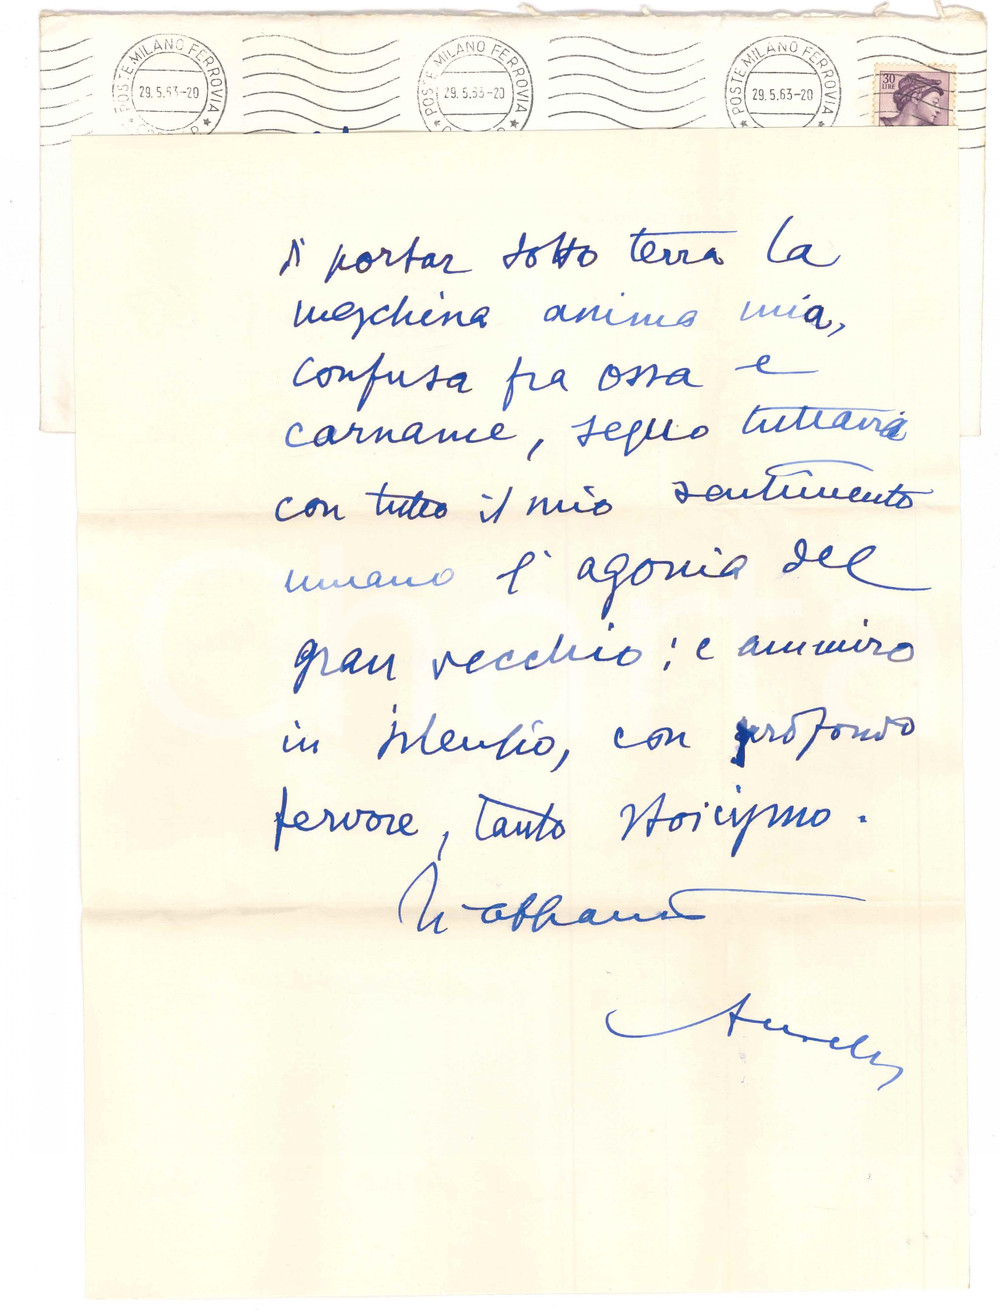 POSTE MILANO FERROVIA
29.5.63-20
POSTE MILANO FERROVIA
29.5.63-20
POSTE MILANO FERROVIA
29.5.63-20
30
LIRE
di portar sotto terra la
meschina anima mia,
confusa fra ossa e
carname, seguo tuttavia
con tutto il mio sentimento
umano l'agonia del
gran vecchio; e ammiro
in silenzio, con profondo
fervore, tanto stoicismo.
Ti abbraccio